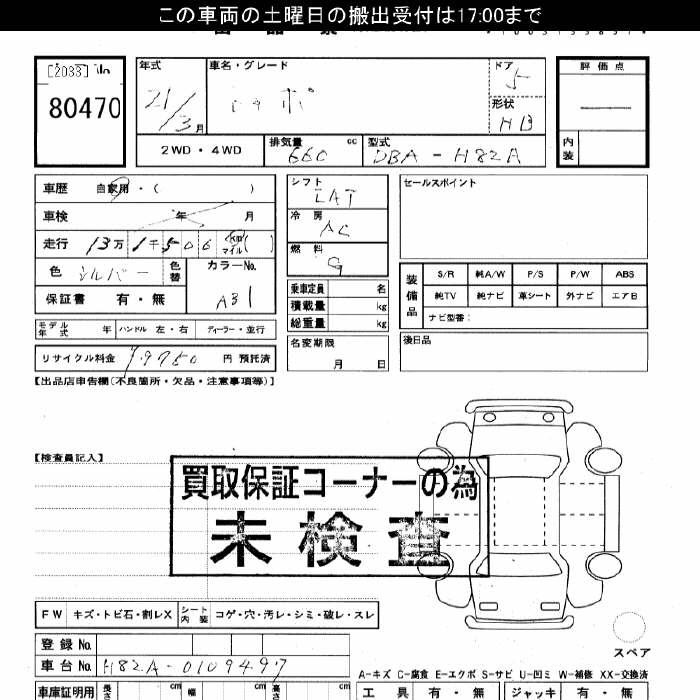 この車両の土曜日の搬出受付は17:00まで
[2033] No
80470
年式
21/3月
車名・グレード
トッポ
ドア
5
形状
HB
評価点
内装
2WD・4WD
排気量 660 cc
型式 DBA-H82A
車歴 自家用・( )
車検 年 月
走行 13万 1千506 km マイル( )
色 シルバー 色替
カラーNo. A31
保証書 有・無
シフト LAT
冷房 AC
燃料 G
乗車定員 名
積載量 kg
総重量 kg
名変期限 月 日
セールスポイント
装備品
S/R 純A/W P/S P/W ABS
純TV 純ナビ 革シート 外ナビ エアB
ナビ型番:
後日品
モデル年式 年 ハンドル 左・右 ディーラー・並行
リサイクル料金 円 預託済
【出品店申告欄(不良箇所・欠品・注意事項等)】
【検査員記入】
買取保証コーナーの為
未検査
FW キズ・トビ石・割レX シート内装 コゲ・穴・汚レ・シミ・破レ・スレ
スペア
登録No.
車台No. H82A-0109497
A-キズ C-腐食 E-エクボ S-サビ U-凹ミ W-補修 XX-交換済
車庫証明用 長さ cm 幅 cm 高さ cm
工具 有・無 ジャッキ 有・無